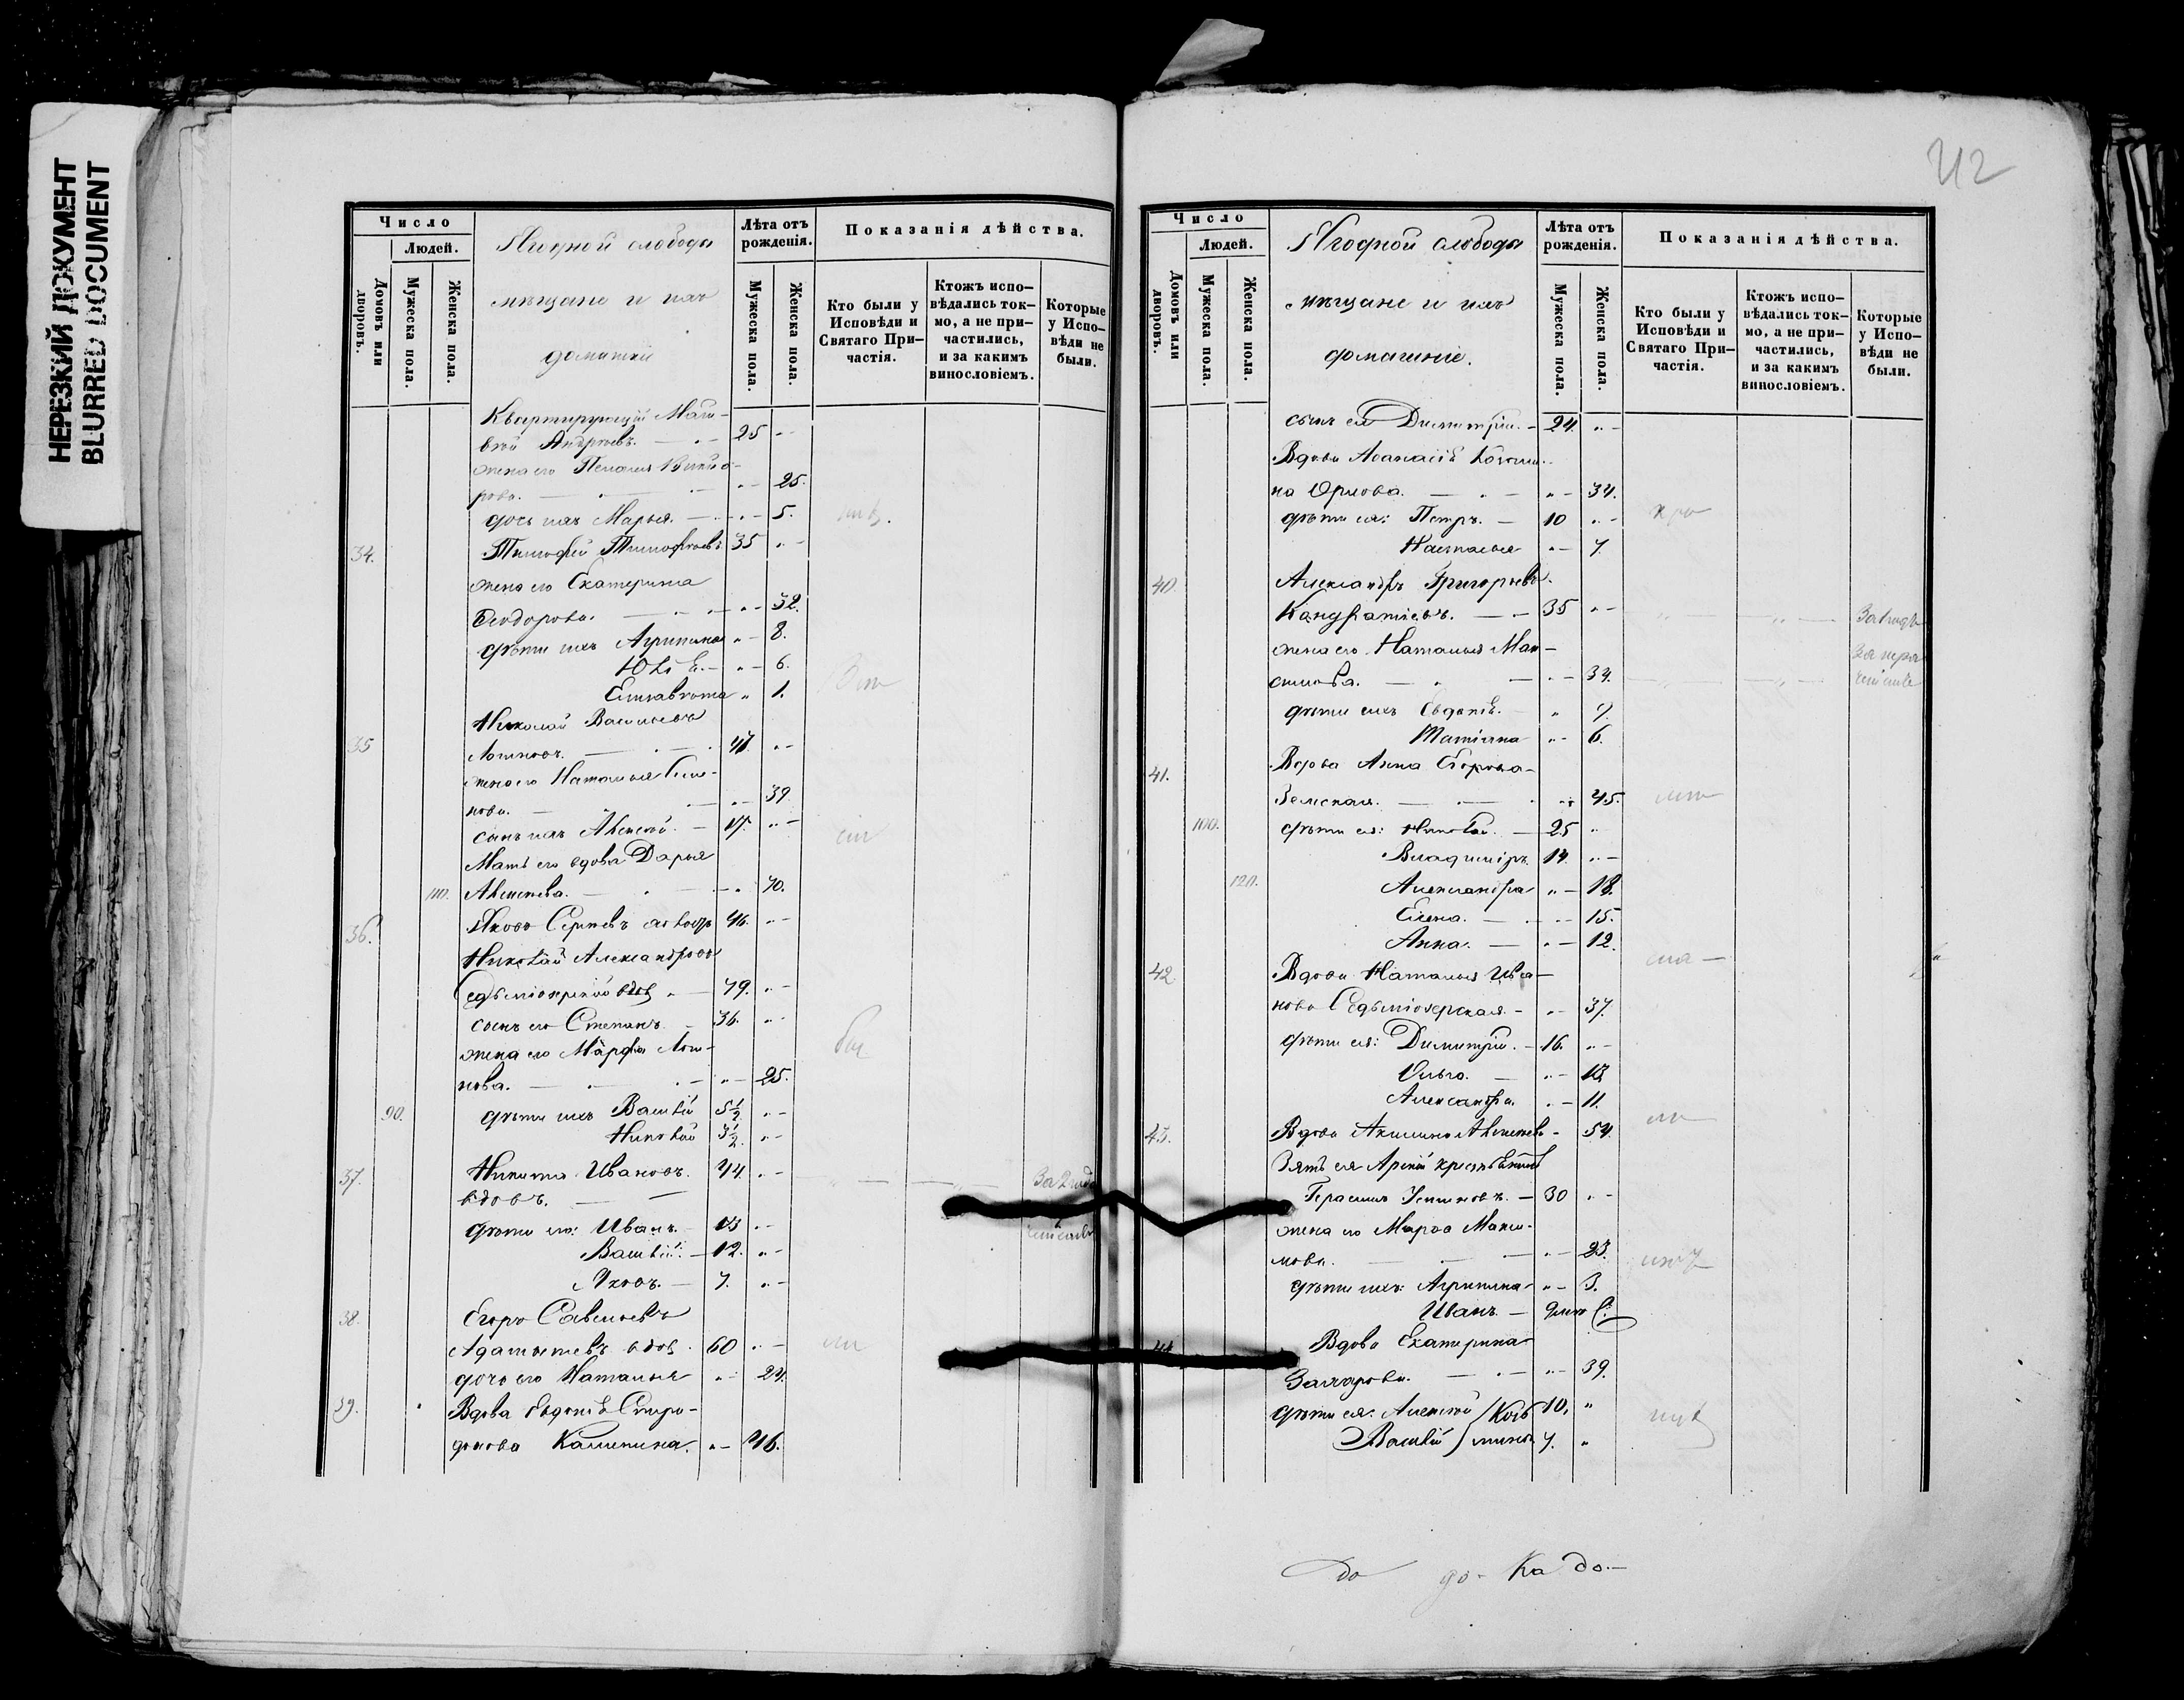 НЕРЕЗКИЙ ДОКУМЕНТ
BLURRED DOCUMENT
Число
Людей.
Домовъ или дворовъ.
Мужеска пола.
Женска пола.
Ягодной слободы
мѣщане и ихъ
домашніе
Лѣта отъ рожденія.
Мужеска пола.
Женска пола.
Показанія дѣйства.
Кто были у Исповѣди и Святаго Причастія.
Ктожъ исповѣдались токмо, а не причастились, и за какимъ винословіемъ.
Которые у Исповѣди не были.
Квартирующій Мат-
вей Андреевъ. 25
жена его Пелагея
25.
дочь ихъ Марья. 5.
34. Тимофей Тимофеевъ 35
жена его Екатерина
Ѳеодорова. 32.
дѣти ихъ Агрипина 8.
Юлія. 6.
Елисавета 1.
Николай Васильевъ
35 47.
жена его Наталья Симо-
нова. 39
сынъ ихъ Алексей. 17.
Мать его вдова Дарья
110. Алексеева. 70.
36. Яковъ Сергеевъ 46.
Николай Александровъ
Седьміозерскій вдов 79.
сынъ его Степанъ. 36.
жена его Марфа Логи-
нова. 25.
90. дѣти ихъ Василій 5½
Николай 3½
37. Никита Ивановъ. 44.
вдовъ. За 2 года
дѣти его: Иванъ. 13
Василій. 12.
Яковъ. 7.
38. Егоръ Савельевъ
вдов. 60
дочь его Наталья 24.
39. Вдова Евдокія Спири-
донова Калинина. 46.
42
Число
Людей.
Домовъ или дворовъ.
Мужеска пола.
Женска пола.
Ягодной слободы
мѣщане и ихъ
домашніе.
Лѣта отъ рожденія.
Мужеска пола.
Женска пола.
Показанія дѣйства.
Кто были у Исповѣди и Святаго Причастія.
Ктожъ исповѣдались токмо, а не причастились, и за какимъ винословіемъ.
Которые у Исповѣди не были.
сынъ ея Димитрій. 24.
Вдова Аѳанасія
на Орлова. 34.
дѣти ея: Петръ. 10
Наталья 7.
40. Александръ Григорьевъ
Кандратіевъ. 35
жена его Наталья Мак-
симова. 34.
дѣти ихъ Евдокія. 9.
Татіана 6.
41. Вдова Анна Егорова
Земская. 45.
100. дѣти ея: Николай. 25
Владиміръ. 14.
120. Александра 18.
Елена. 15.
Анна. 12.
42. Вдова Наталья Ива-
нова Седьміозерская. 37.
дѣти ея: Димитрій. 16.
Ольга. 13.
Александра. 11.
43. Вдова Акилина Алексеева 54.
Зять ея Арскій крестьянинъ
Герасимъ Устиновъ. 30
жена его Марѳа Макси-
мова. 23.
дѣти ихъ: Агрипина 3.
Иванъ.
44 Вдова Екатерина
Захарова. 39.
дѣти ея: Алексей 10.
Василій 7.
до до- Ка до.